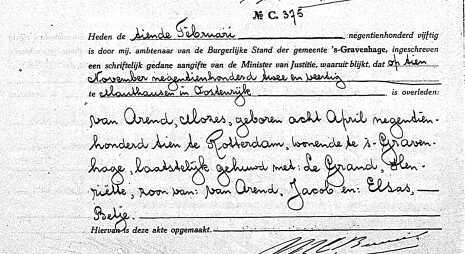 № C. 375
Heden de tiende Februari negentienhonderd vijftig
is door mij, ambtenaar van de Burgerlijke Stand der gemeente 's-Gravenhage, ingeschreven
een schriftelijk gedane aangifte van de Minister van Justitie, waaruit blijkt, dat op tien
November negentienhonderd twee en veertig
te Mauthausen in Oostenrijk is overleden:
van Arend, Mozes, geboren acht April negentien-
honderd tien te Rotterdam, wonende te 's-Graven-
hage, laatstelijk gehuwd met: Le Grand, Hen-
riëtte; zoon van: van Arend, Jacob en: Elsas,
Betje.
Hiervan is deze akte opgemaakt.